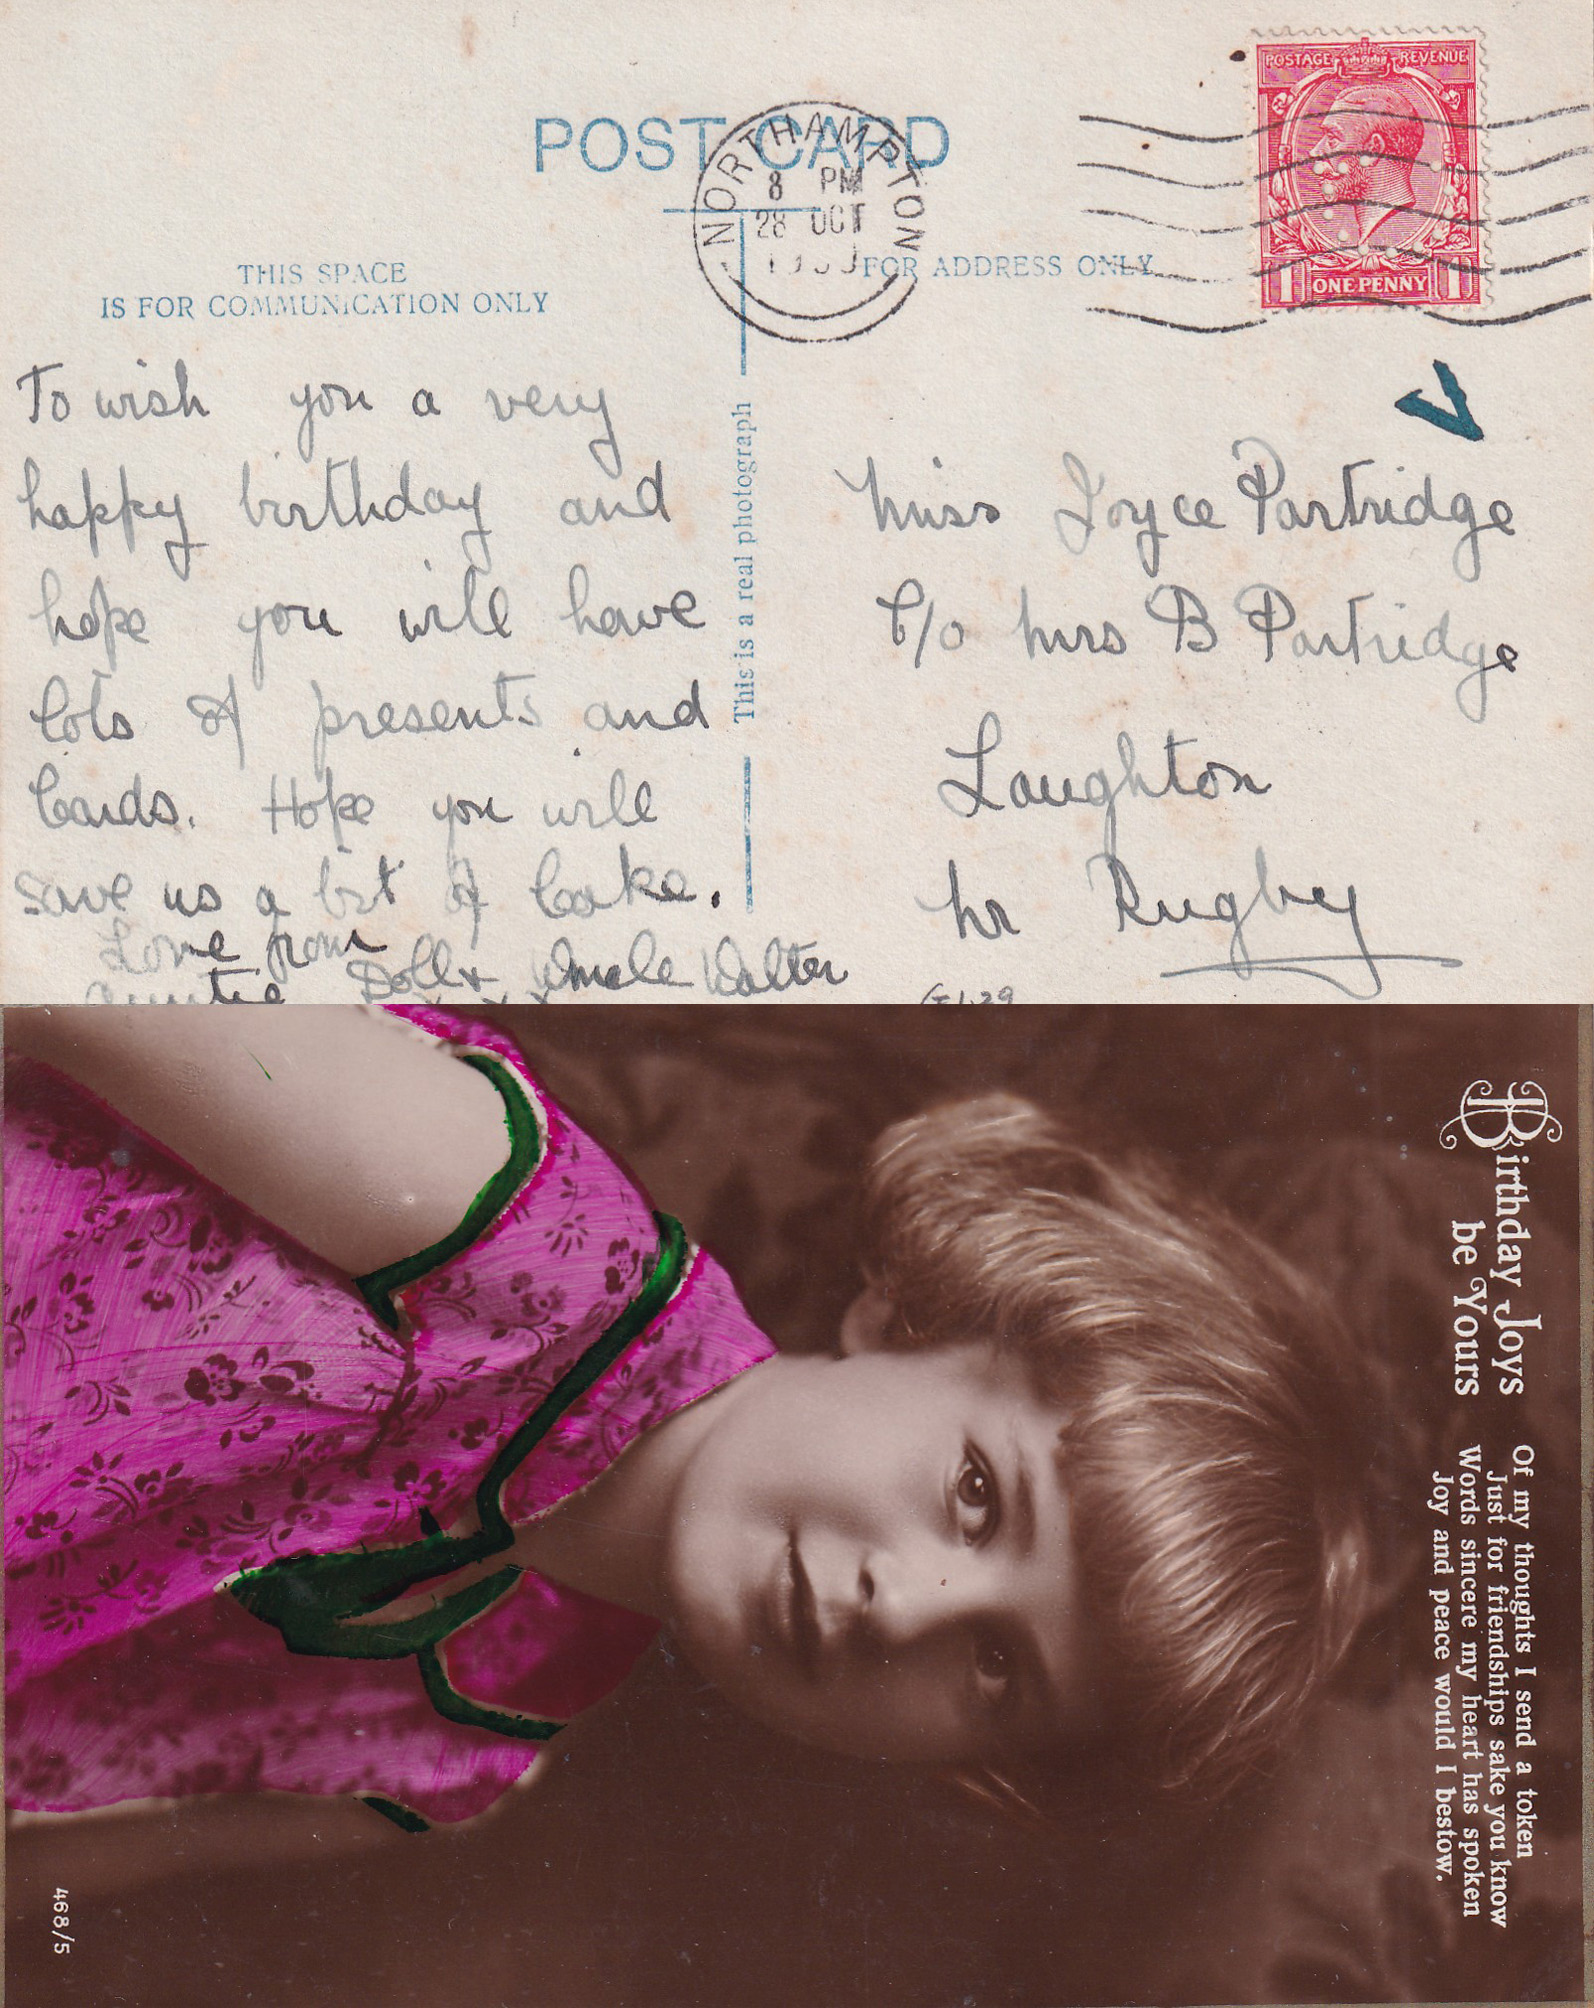 POST CARD
NORTHAMPTON
8 PM
28 OCT
POSTAGE REVENUE
1 ONE PENNY 1
THIS SPACE
IS FOR COMMUNICATION ONLY
FOR ADDRESS ONLY
To wish you a very
happy birthday and
hope you will have
lots of presents and
Cards. Hope you will
save us a bit of Cake.
Love from
Auntie Doll & Uncle Walter
x x x
This is a real photograph
Miss Joyce Partridge
C/o Mrs B Partridge
Laughton
Nr Rugby
Birthday Joys
be Yours
Of my thoughts I send a token
Just for friendships sake you know
Words sincere my heart has spoken
Joy and peace would I bestow.
468/5